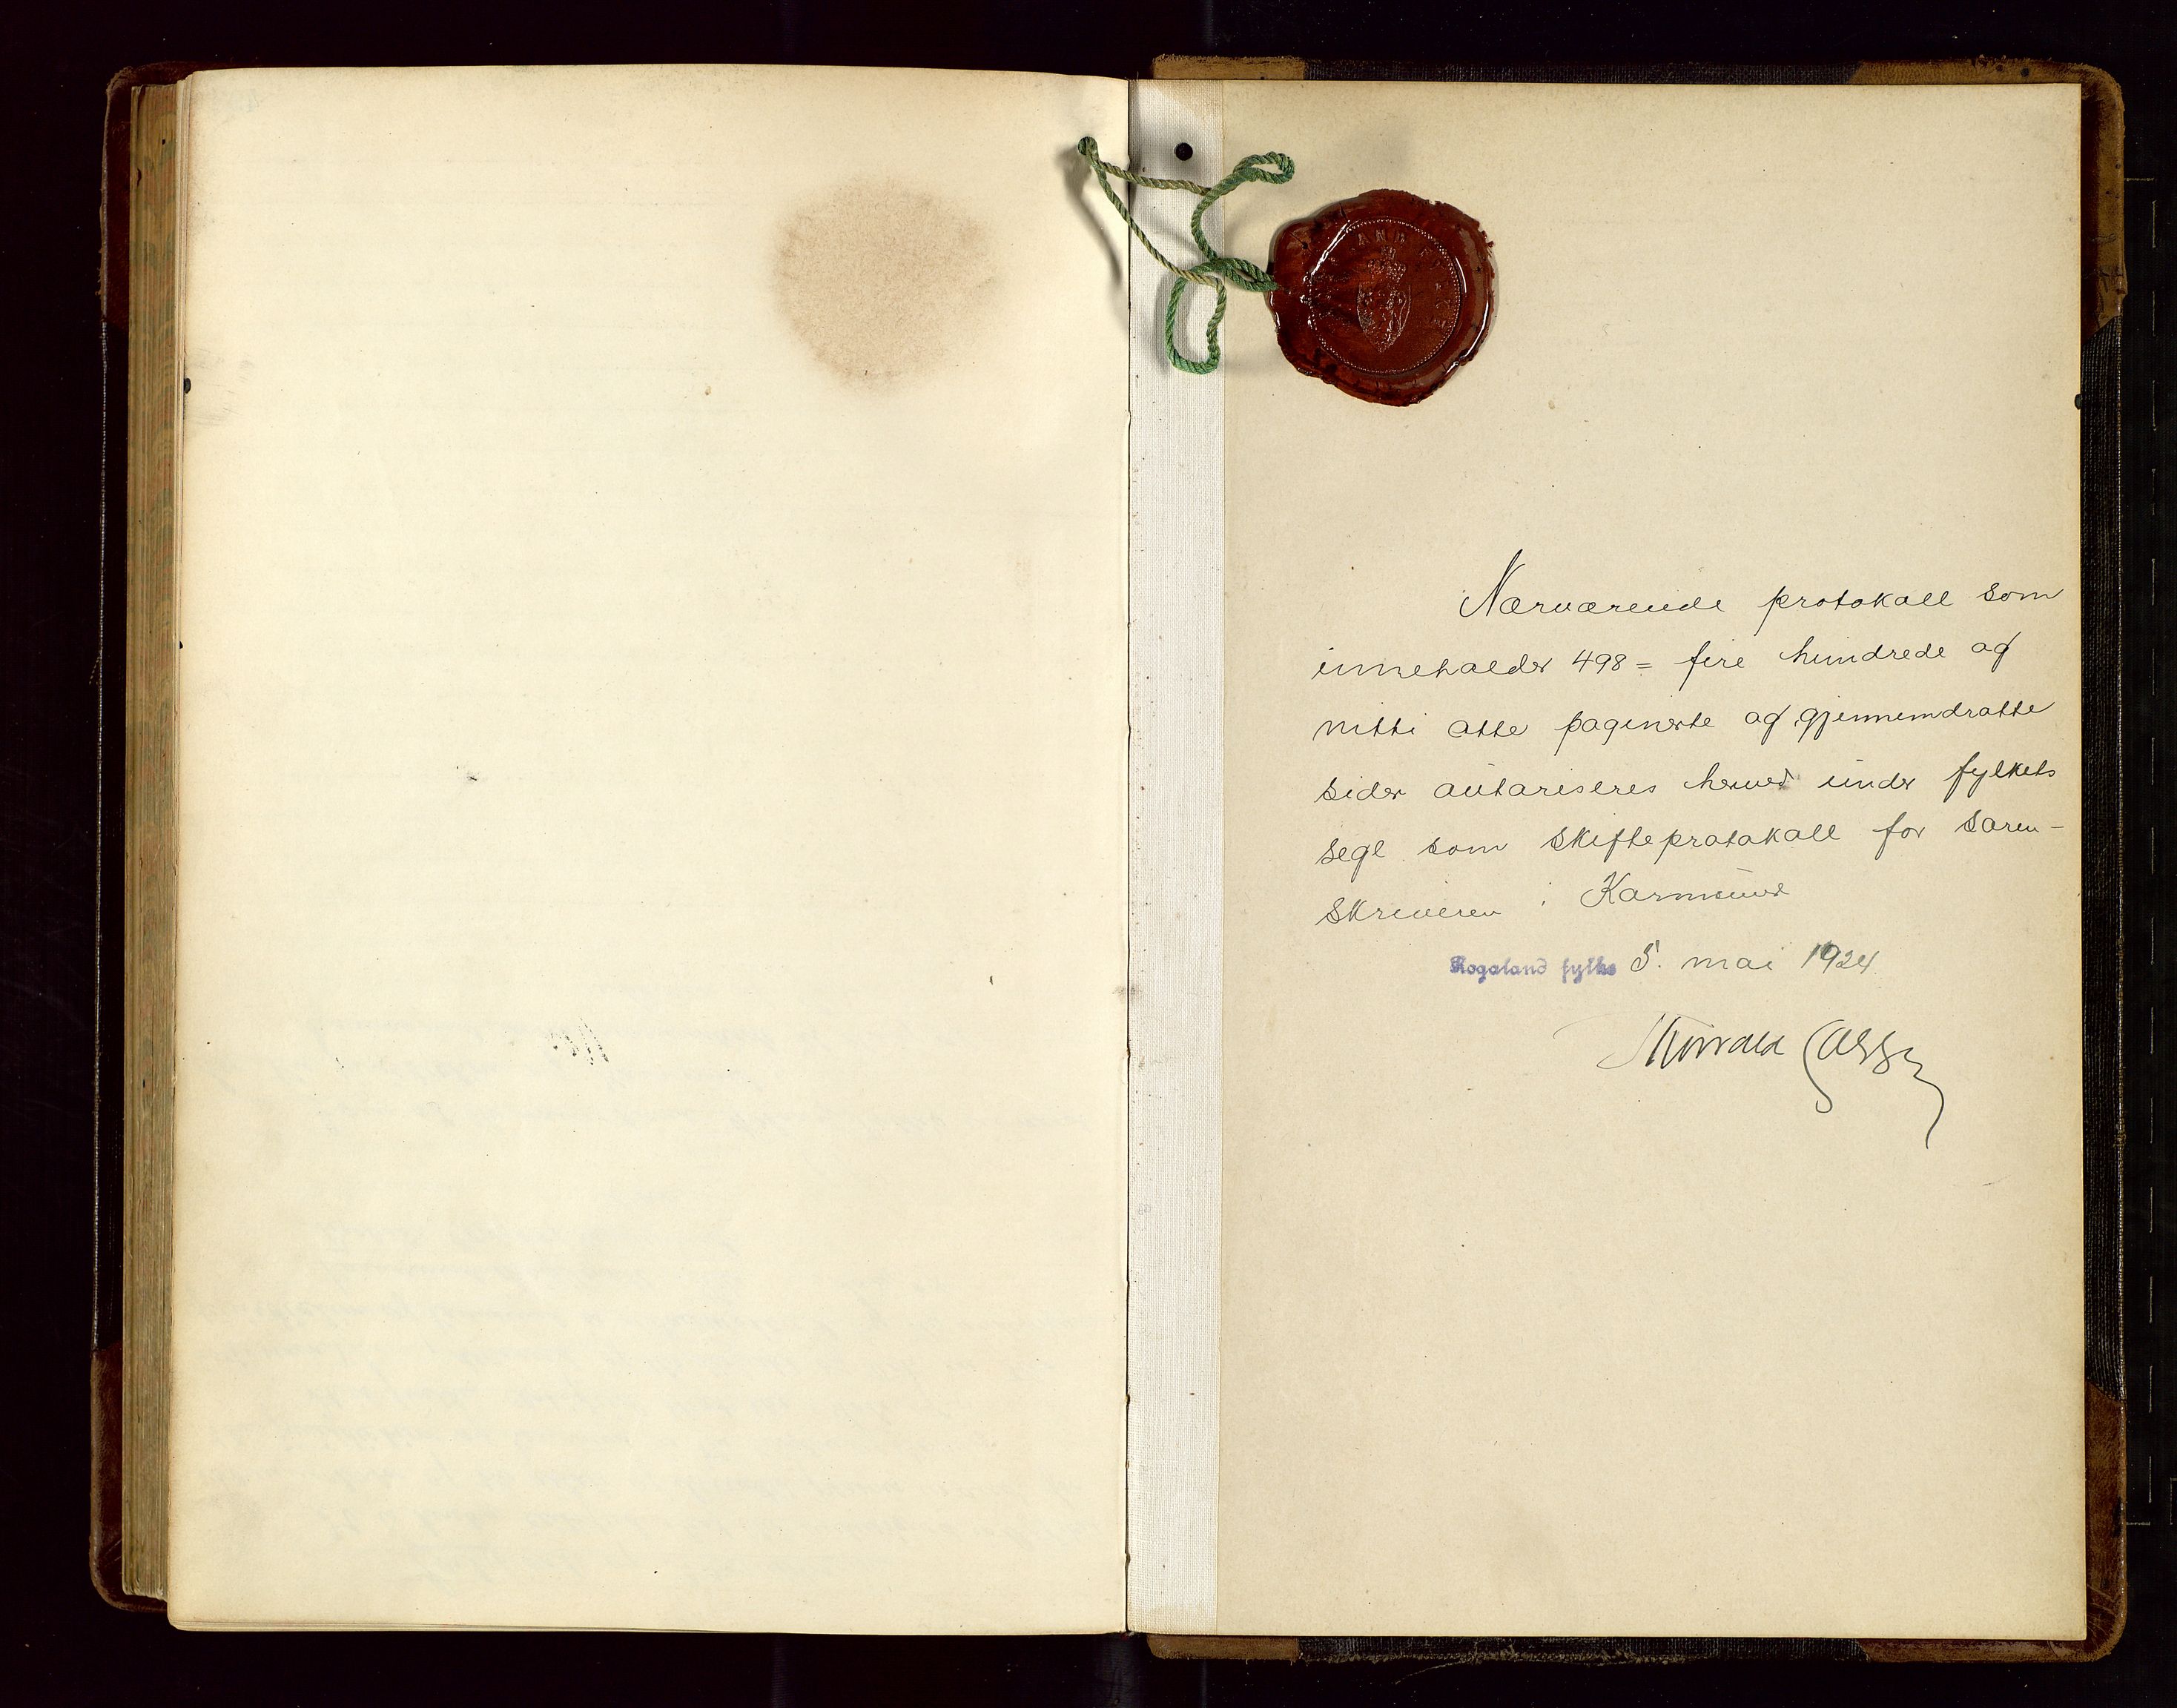 AND FYLKE
Nærværende protokoll som
inneholder 498 = fire hundrede og
nitti otte paginerte og gjennemdratte
sider autoriseres herved under fylkets
segl som skifteprotokoll for soren-
skriveren i Karmsund
Rogaland fylke 5. mai 1924
Thorvald